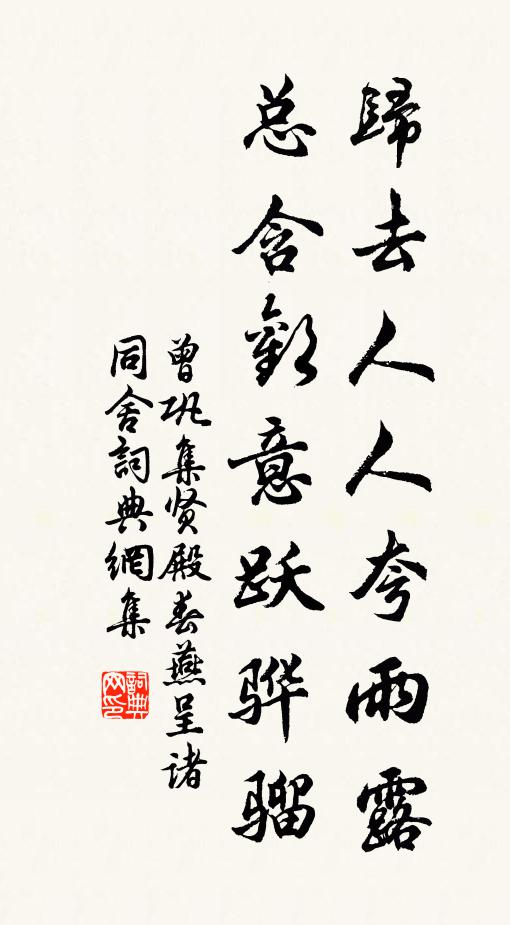 歸去人人夸雨露
总含歡意跃骅骝
曾巩集贤殿春燕呈诸
同舍詞典網集
詞典网印